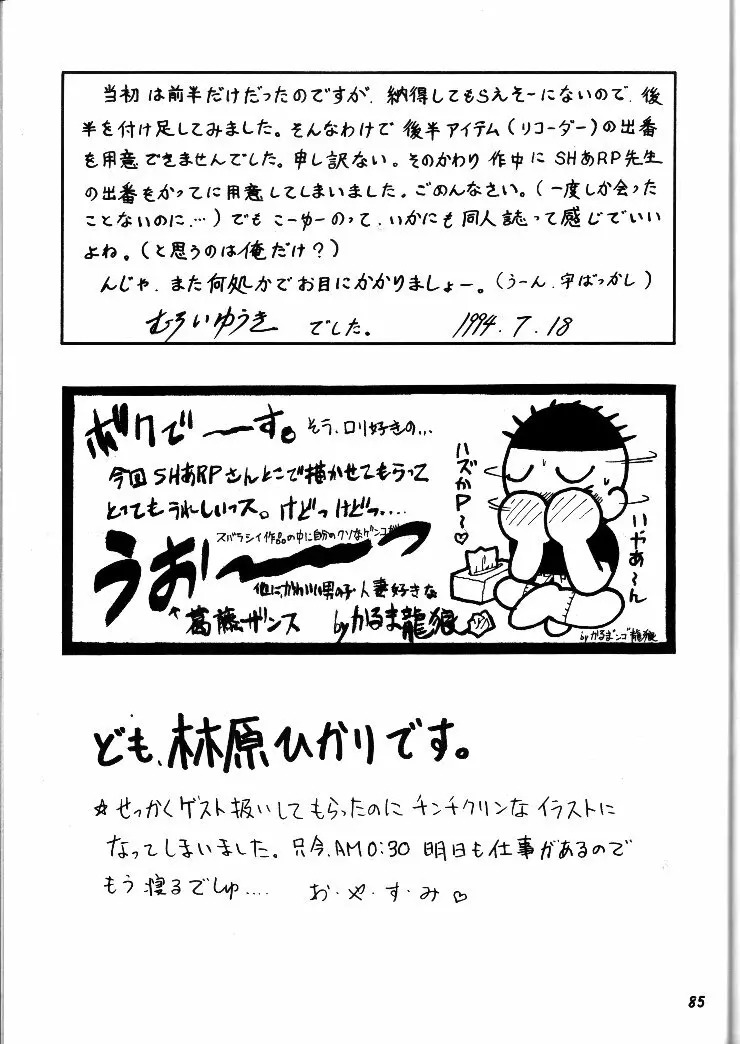 当初は前半だけだったのですが、納得してもらえそーにないので、後
半を付け足してみました。そんなわけで後半アイテム(リコーダー)の出番
を用意できませんでした。申し訳ない。そのかわり作中にSHあRP先生
の出番をかってに用意してしまいました。ごめんなさい。(一度しか会った
ことないのに…)でもこーゆーのって、いかにも同人誌って感じでいい
よね。(と思うのは俺だけ?)
んじゃ、また何処かでお目にかかりましょー。(うーん、字ばっかし)
むろいゆうき でした。 1994.7.18
ボクで〜〜す。そう、ロリ好きの…
今回SHあRPさんとこで描かせてもらって
とってもうれしいっス。けどっけどっ‥‥
スバラシイ作品の中に自分のクソなゲンコ
うお〜〜〜っ
他にかわいい男の子・人妻好きな
↖葛藤ザンス by かるま龍狼
ハズかP〜♡
いやあ〜ん
by かるまンゴ龍狼
ども、林原ひかりです。
☆せっかくゲスト扱いしてもらったのにチンチクリンなイラストに
なってしまいました。只今、AM0:30 明日も仕事があるので
もう寝るでしゅ‥‥ お・や・す・み♡
85